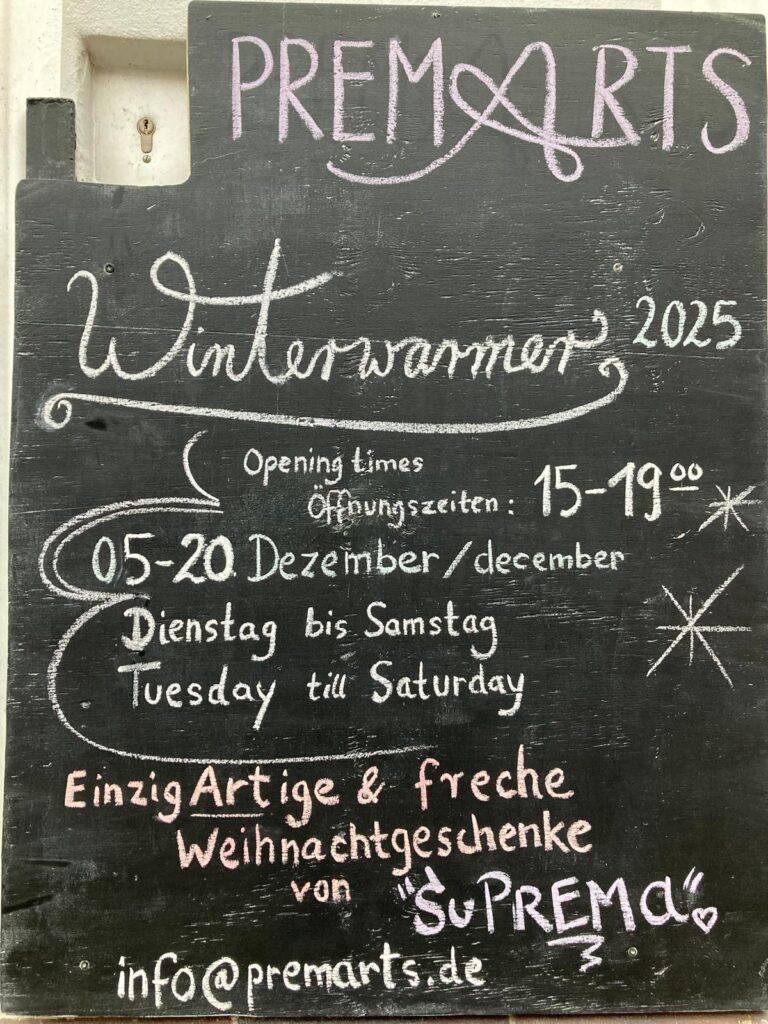 PREMARTS
Winterwarmer 2025
Opening times
Öffnungszeiten: 15-19⁰⁰
05-20. Dezember/december
Dienstag bis Samstag
Tuesday till Saturday
EinzigArtige & freche
Weihnachtgeschenke
von "SuPREMa"
info@premarts.de